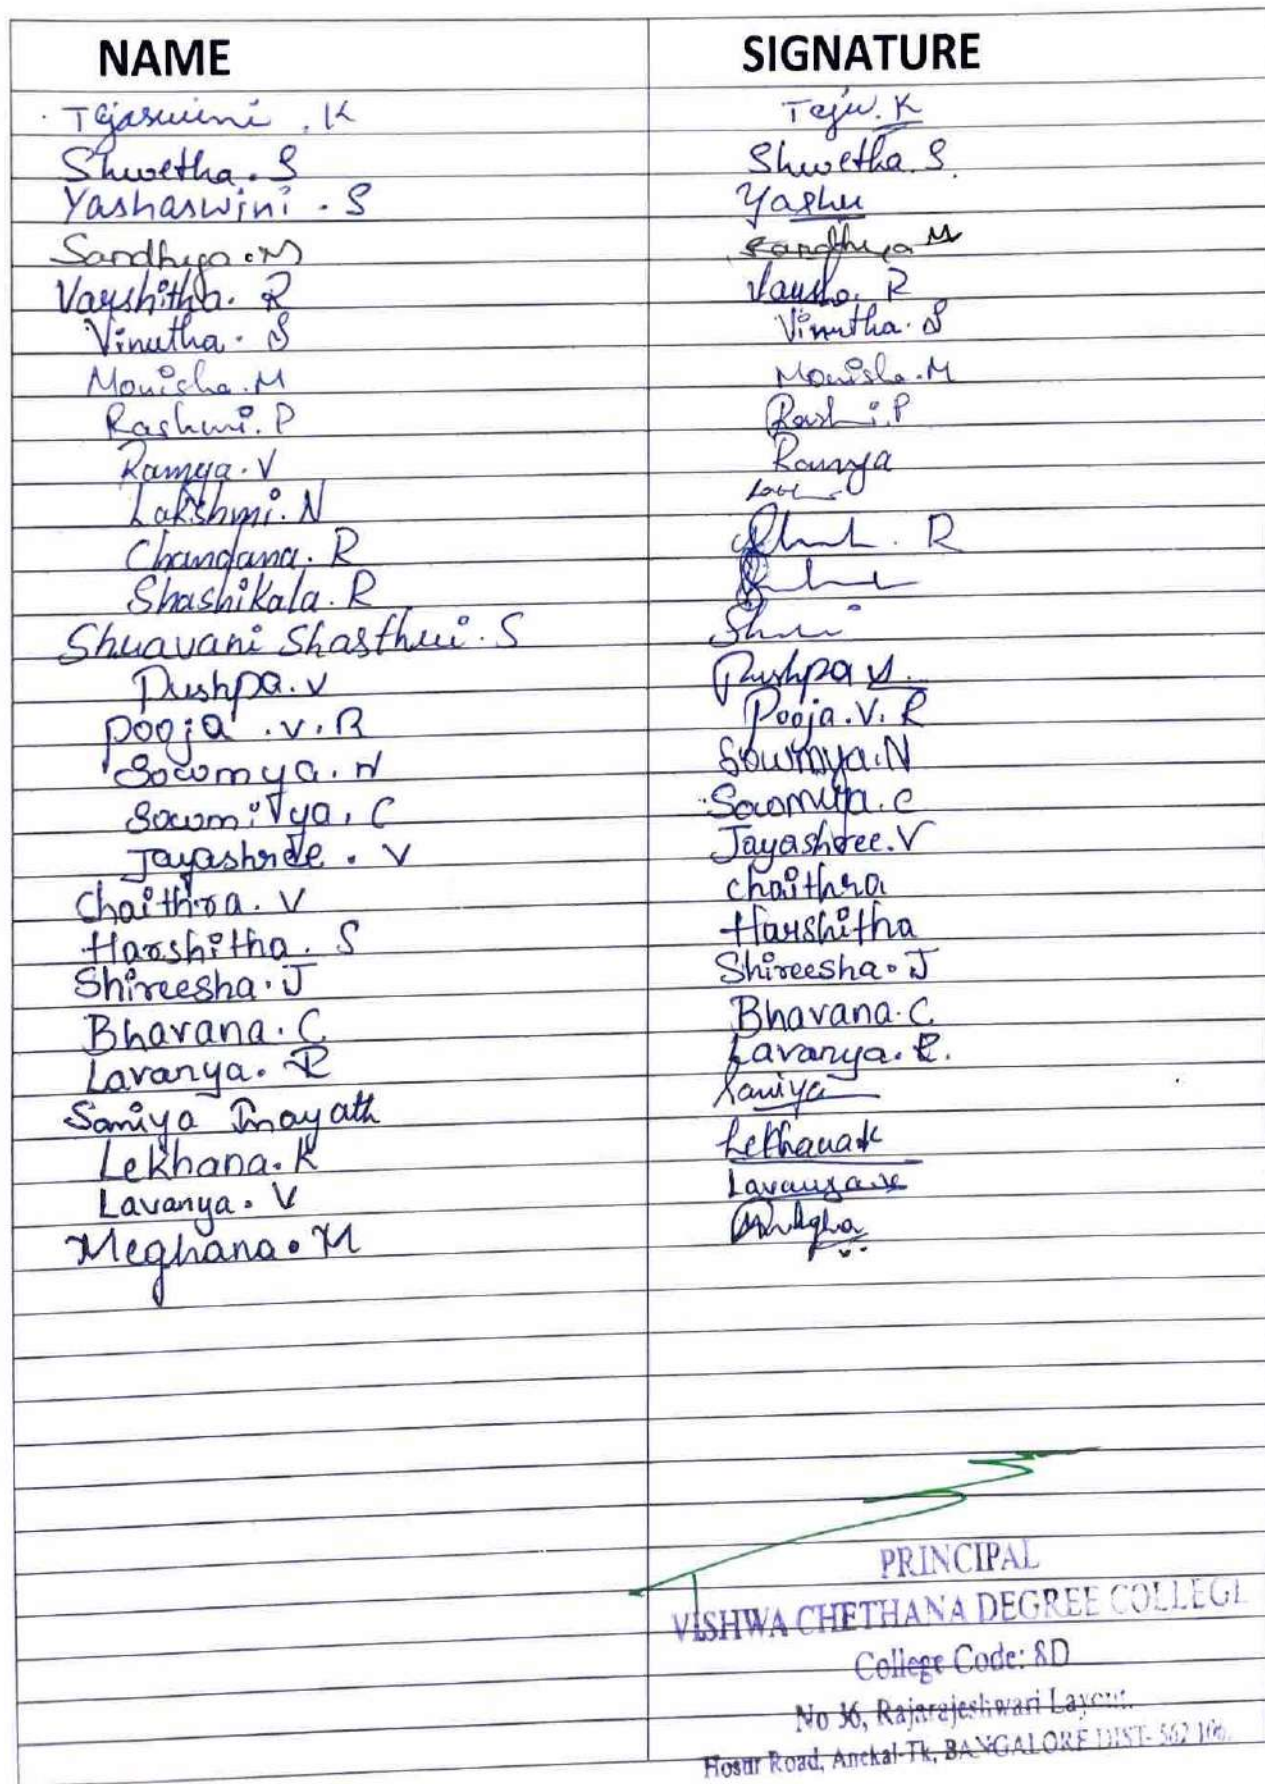 NAME SIGNATURE
Tejaswini . K Teju. K
Shwetha. S Shwetha. S.
Yashaswini . S Yashu
Sandhya . M Sandhya M
Varshitha. R Varsha. R
Vinutha. S Vinutha. S
Monisha. M Monisha. M
Rashmi. P Rashmi. P
Ramya. V Ramya
Lakshmi. N
Chandana. R R
Shashikala. R
Shravani Shasthri. S
Pushpa. V Pushpa V
Pooja . V. R Pooja. V. R
Sowmya. N Sowmya. N
Sowmya. C
Jayashree . V Jayashree. V
Chaithra. V chaithra
Harshitha. S Harshitha
Shireesha. J Shireesha. J
Bhavana. C Bhavana. C
Lavanya. R Lavanya. R.
Saniya Inayath Saniya
Lekhana. K Lekhana K
Lavanya. V Lavanya. V
Meghana. M
PRINCIPAL
VISHWA CHETHANA DEGREE COLLEGE
College Code: 8D
No 36, Rajarajeshwari Layout.
Hosur Road, Anekal-Tk, BANGALORE DIST- 562 106.